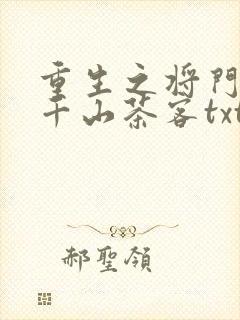 重生之将門
千山茶客txt
郝聖領